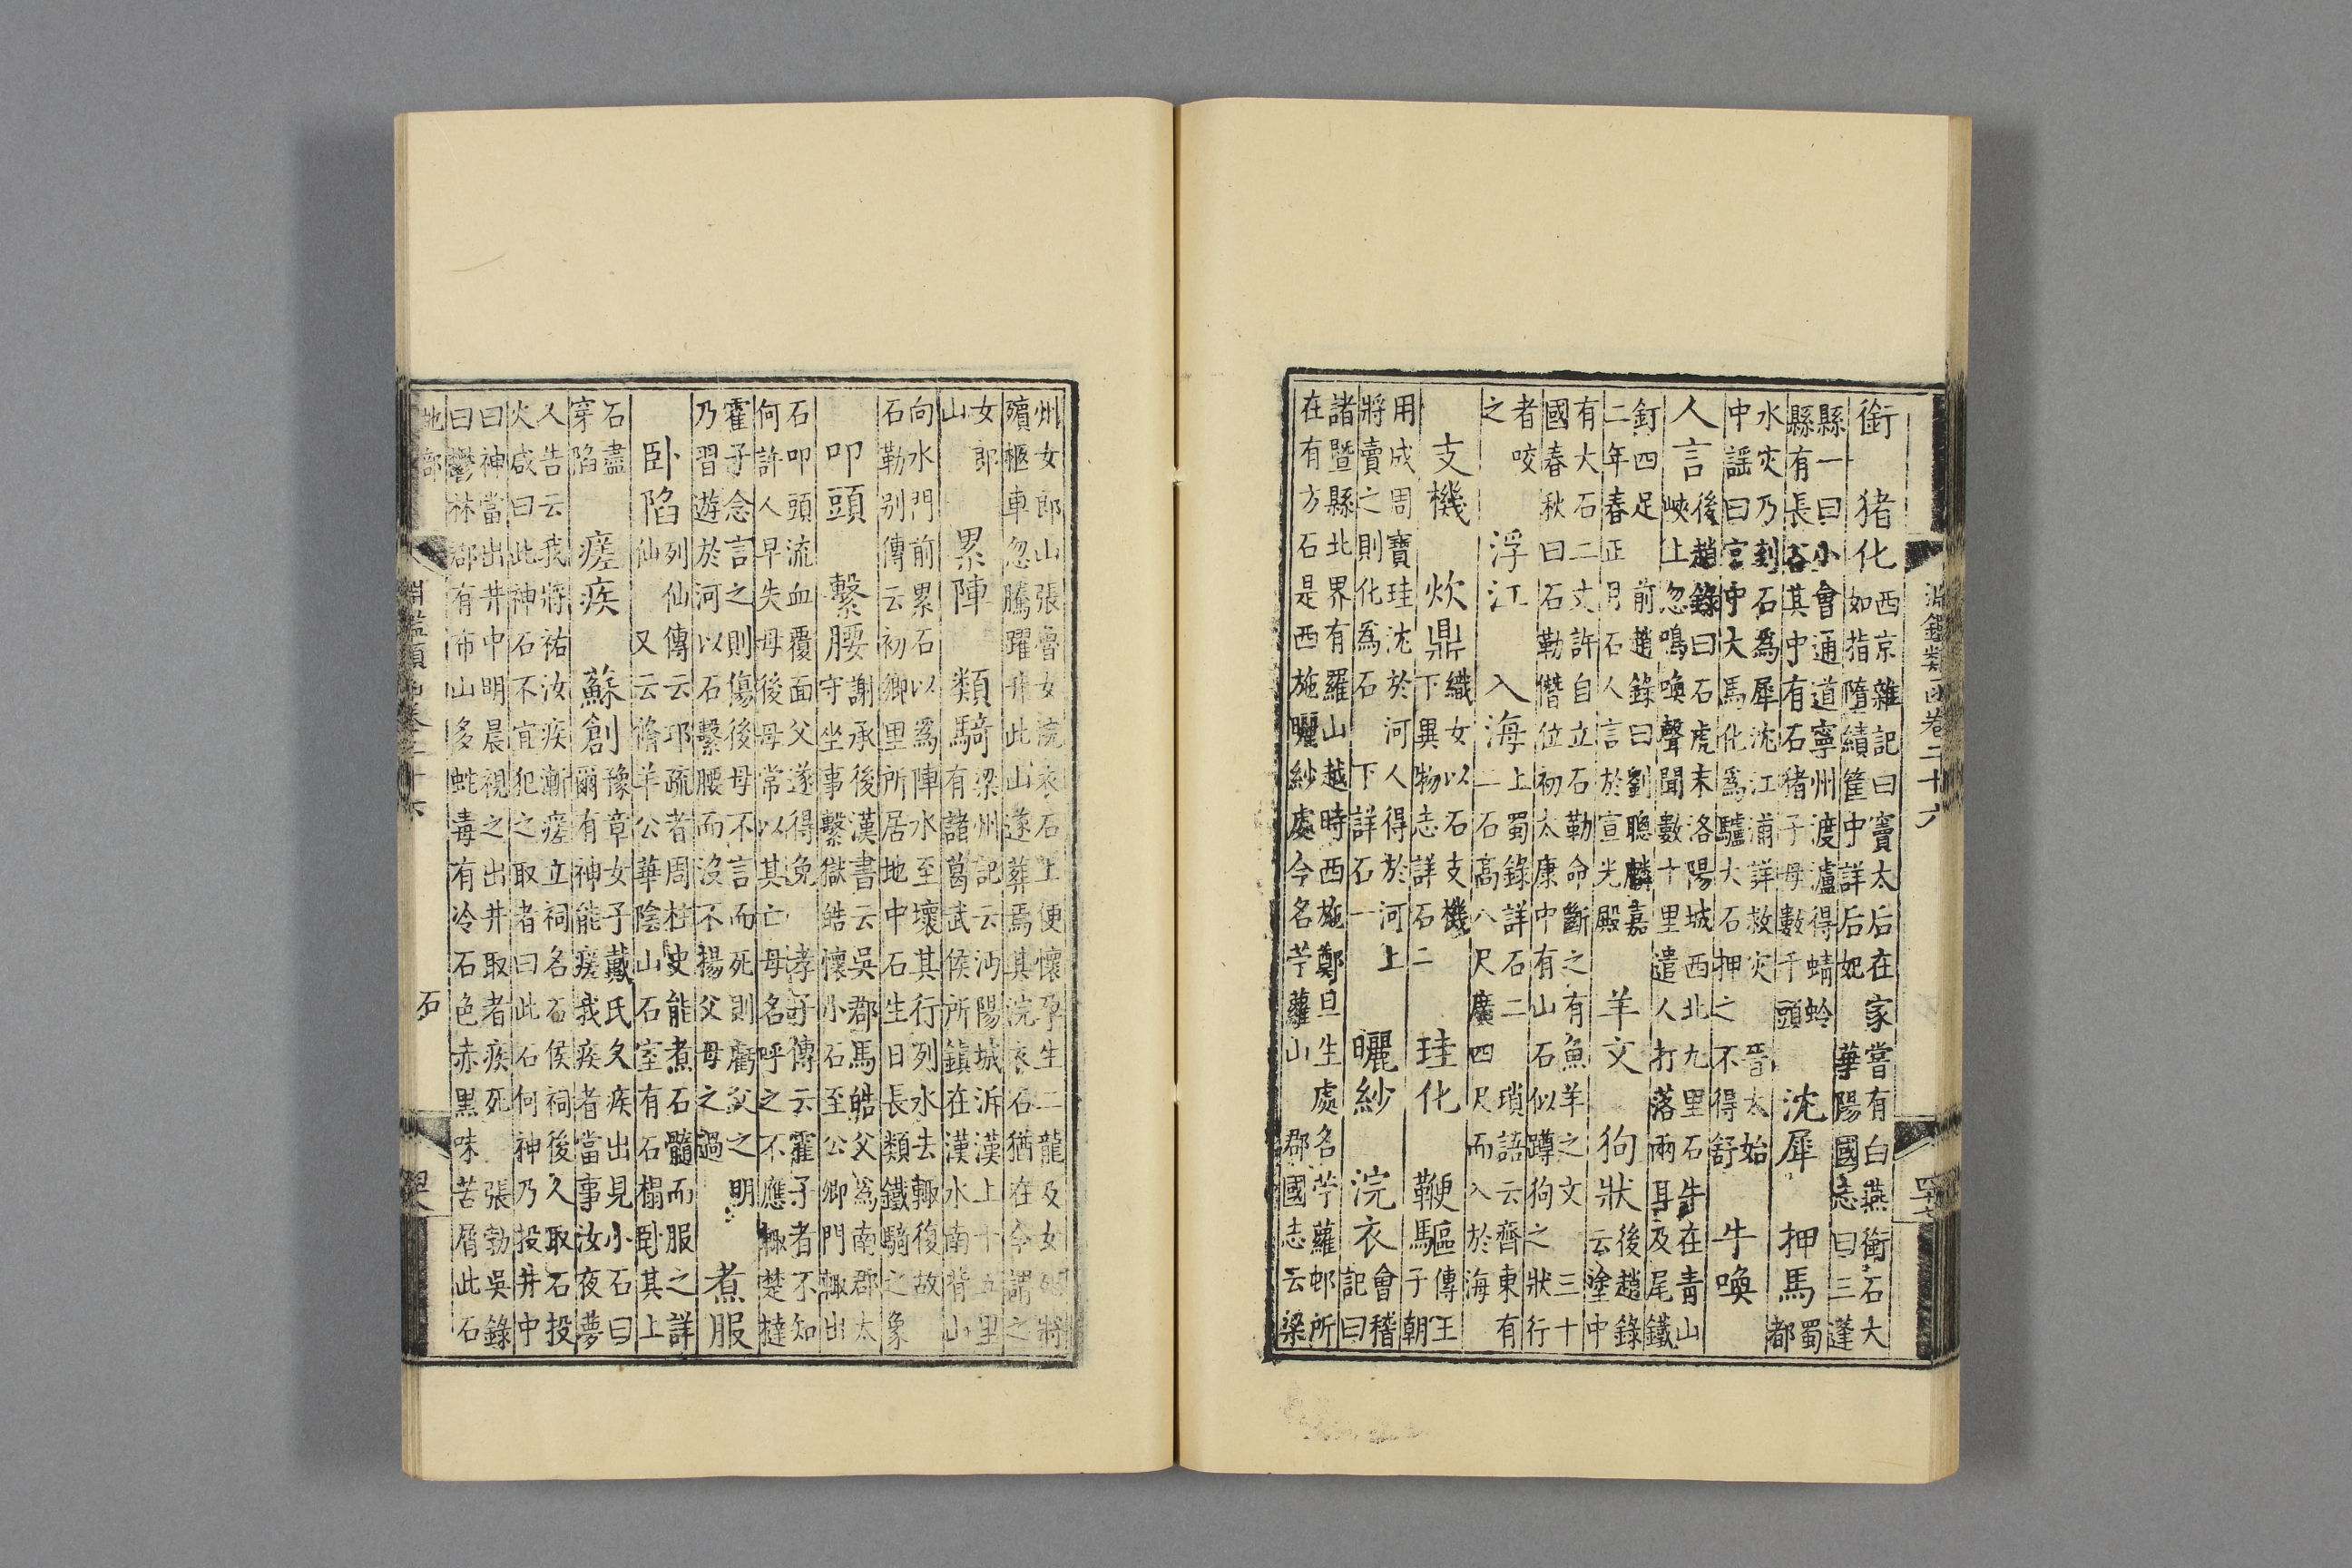 淵鑑類函卷二十六
銜 猪化 西京雜記曰竇太后在家嘗有白燕銜石大
如指墮績筐中詳后妃 華陽國志曰三蓬
縣一曰小會通道寧州渡瀘得蜻蛉
縣有長谷其中有石猪子母數千頭 沈犀 押馬 蜀
都
水灾乃刻石為犀沈江詳救灾 晉太始
中謡曰宫中大馬化為驢大石押之不得舒 牛喚
人言 後趙錄曰石虎末洛陽城西北九里石牛在青山
峽上忽鳴喚聲聞數十里遣人打落兩耳及尾鐵
釘四足 前趙錄曰劉聰麟嘉
二年春正月石人言於宣光殿 羊文 狗狀 後趙錄
云塗中
有大石二丈許自立石勒命斷之有魚羊之文 三十
國春秋曰石勒僭位初太康中有山石似蹲狗之狀行
者咬
之 浮江 入海 上蜀錄詳石二 瑣語云齊東有
二石高八尺廣四尺而入於海
支機 炊鼎 織女以石支機
下異物志詳石二 珪化 鞭驅 傳王
子朝
用成周寶珪沈於河人得於河上
將賣之則化為石 下詳石一 曬紗 浣衣 會稽
記曰
諸暨縣北界有羅山越時西施鄭旦生處名苧蘿邨所
在有方石是西施曬紗處今名苧蘿山 郡國志云梁
州女郎山張魯女浣衣石上便懷孕生二龍及女死將
殯柩車忽騰躍升此山遂葬焉其浣衣石猶在今謂之
女郎
山 累陣 類騎 梁州記云沔陽城泝漢上十五里
有諸葛武侯所鎮在漢水南背山
向水門前累石以為陣水至壞其行列水去輙復故
石勒別傳云初鄉里所居地中石生日長類鐵騎之象
叩頭 繫腰 謝承後漢書云吳郡馬皓父為南郡太
守坐事繫獄皓懷小石至公卿門輙出
石叩頭流血覆面父遂得免 孝子傳云霍子者不知
何許人早失母後母常以其亡母名呼之不應輙楚撻
霍子念言之則傷後母不言而死則虧父之明
乃習遊於河以石繫腰而沒不揚父母之過 煮服
臥陷 列仙傳云邛疏者周柱史能煮石髓而服之詳
仙 又云脩羊公華陰山石室有石榻臥其上
石盡
穿陷 瘥疾 蘇創 豫章女子戴氏久疾出見小石曰
爾有神能瘥我疾者當事汝夜夢
人告云我將祐汝疾漸瘥立祠名石侯祠後人取石投
火咸曰此神石不宜犯之取者曰此石何神乃投井中
曰神當出井中明晨視之出井取者疾死 張勃吳錄
曰鬱林郡有布山多虵毒有冷石色赤黑味苦屑此石
地部
淵鑑類函卷二十六
石